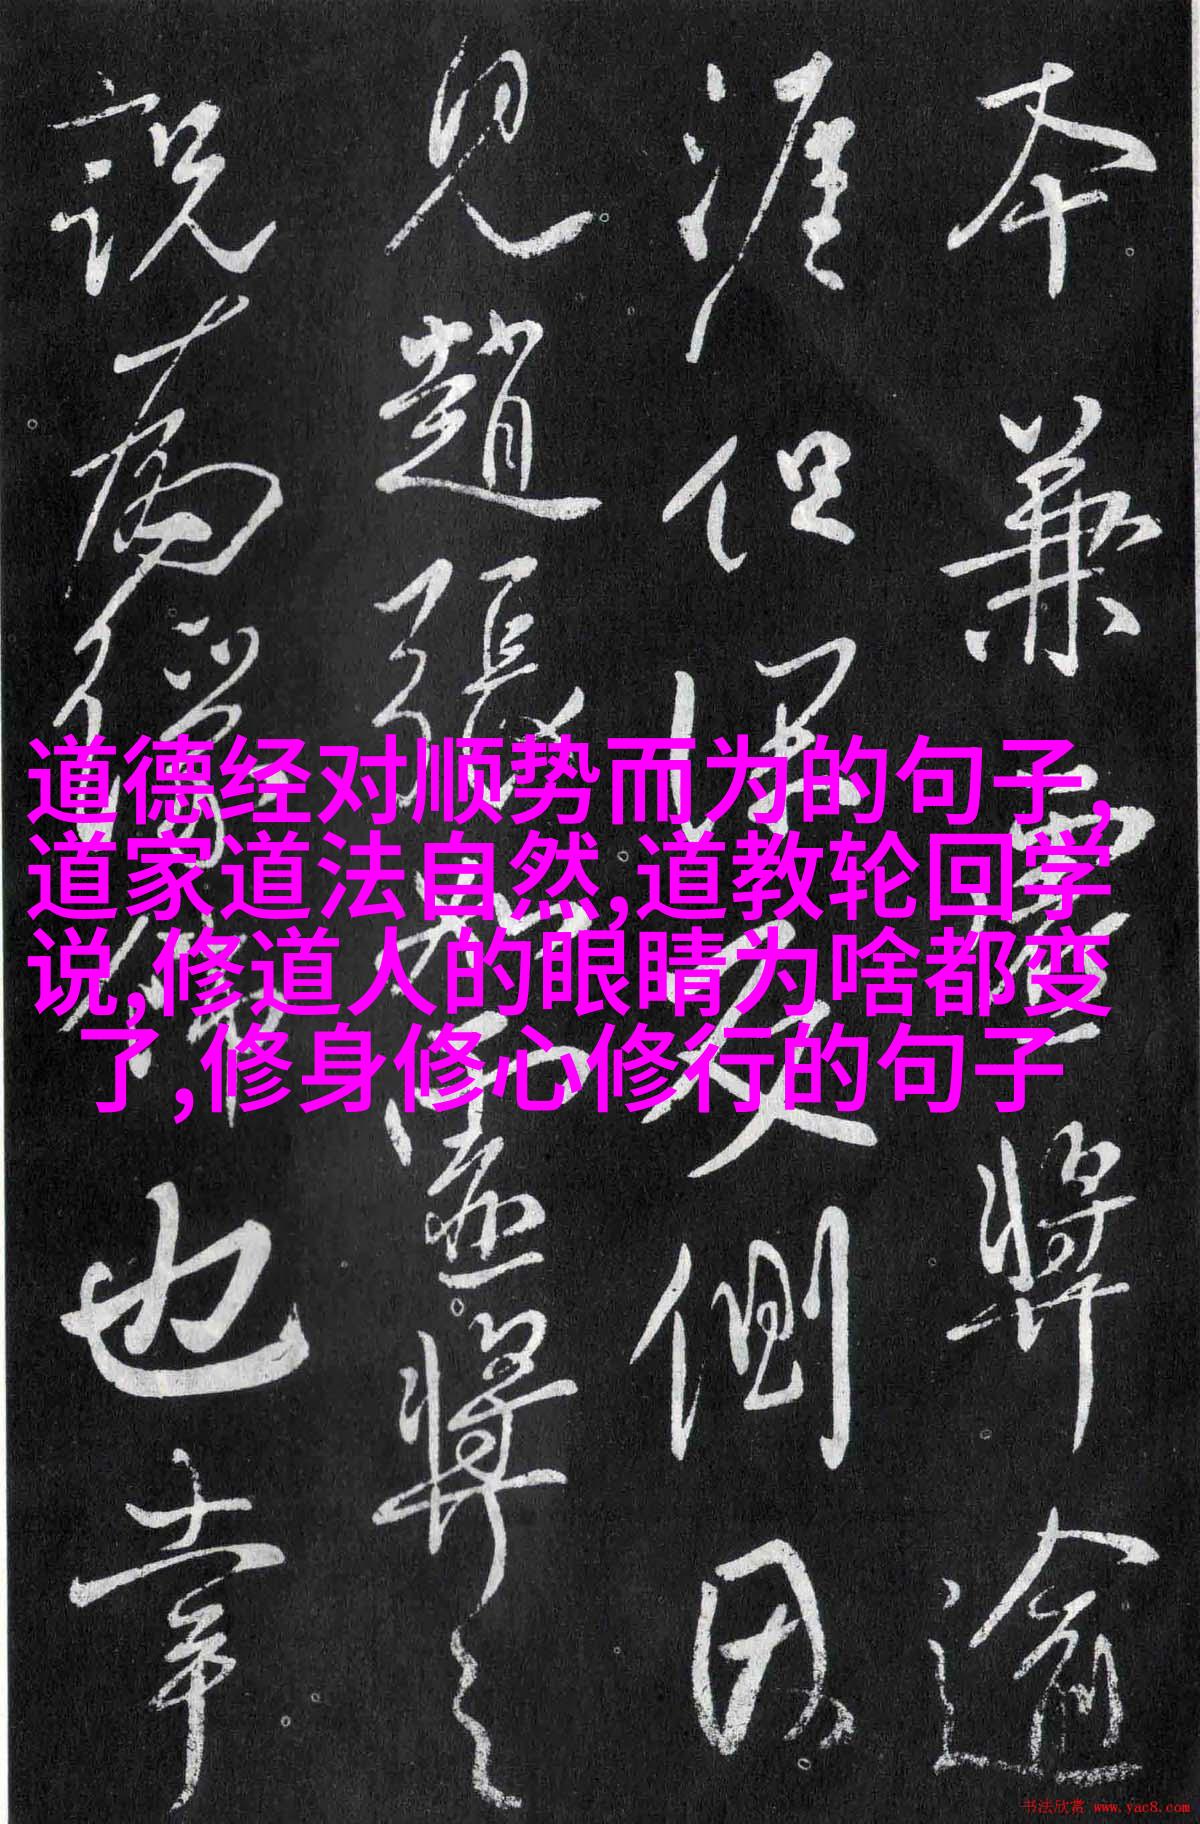 道德经对顺势而为的句子,
道家道法自然,道教轮回学
说,修道人的眼睛为啥都变
了,修身修心修行的句子
本兼將逾
涯但側因
見趙張將之
説為也章
书法欣赏 www.yac8.com